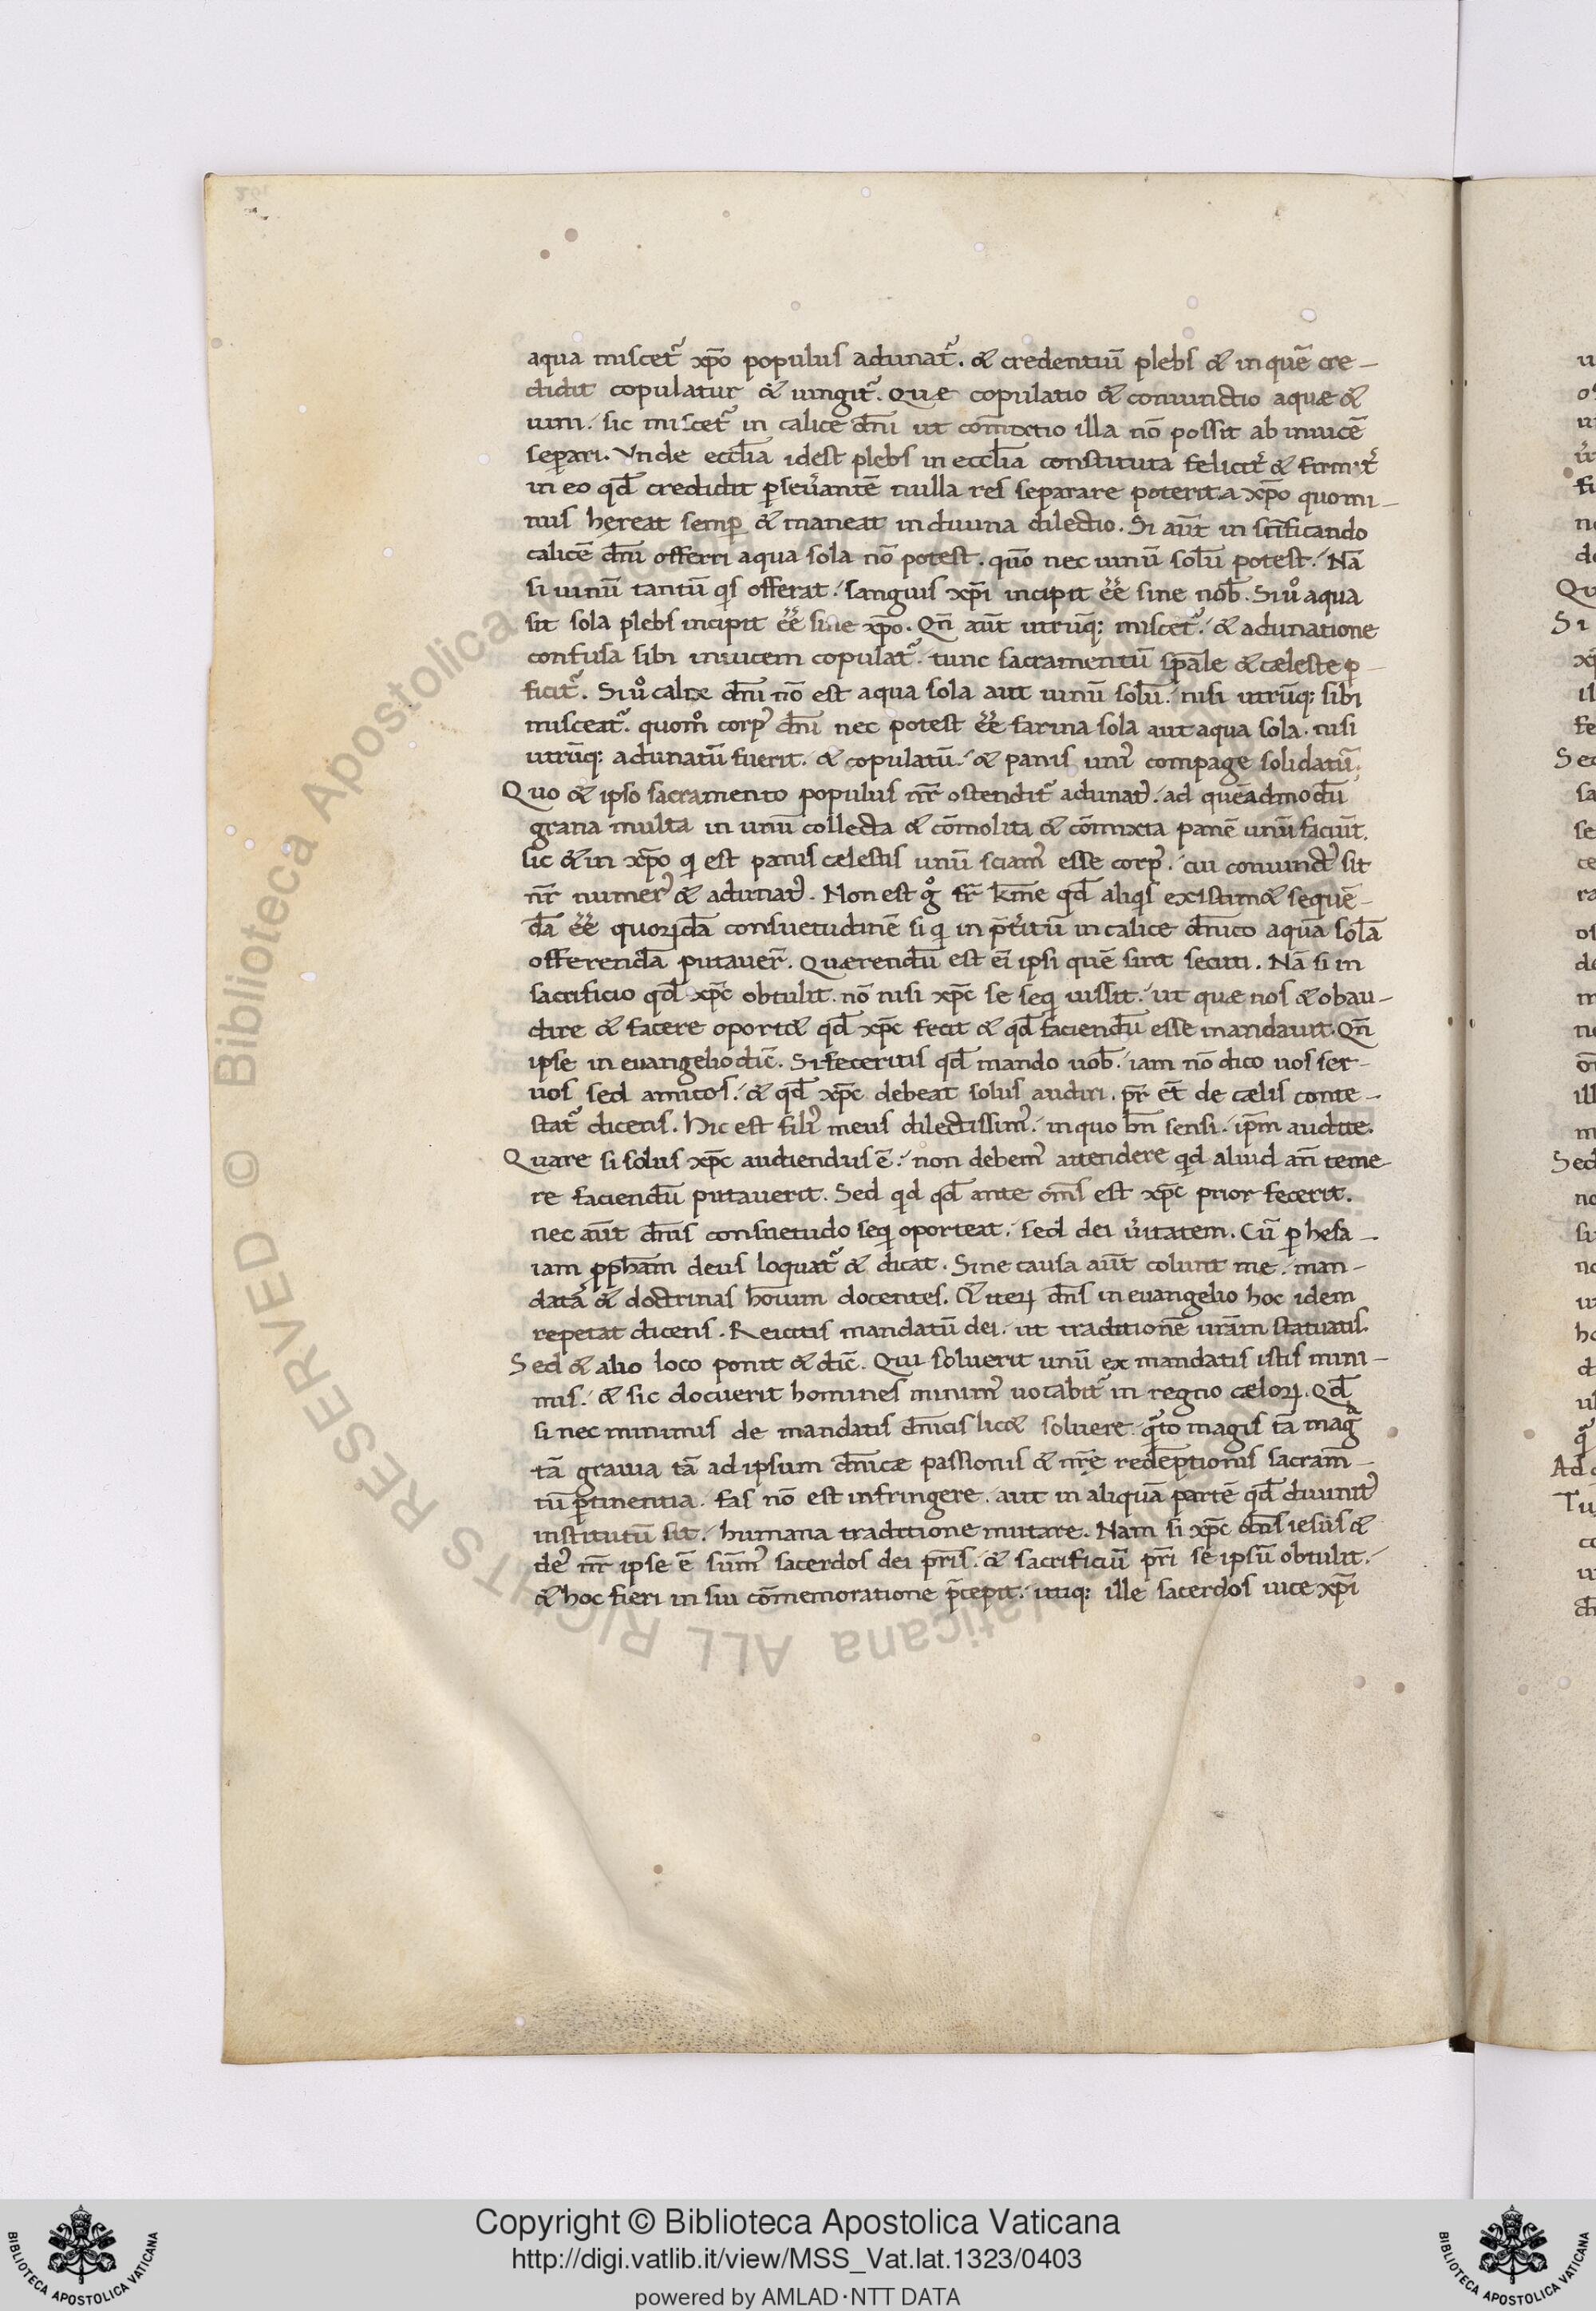 aqua miscet᷑ xp̄o populus adunat᷑. & credentiū plebs & in quē cre-
didit copulatur & iungit᷑. Quæ copulatio & coniunctio aquæ &
uini. sic miscet᷑ in calice dn̄i ut com̄ixtio illa nō possit ab inuicē
separi. Vnde eccl̄ia idest plebs in eccl̄ia constituta felicit᷑ & firmit᷑
in eo qd̄ credidit ꝑseu᷑antē nulla res separare poterit a xp̄o quomi-
nus hereat semꝑ & maneat indiuina dilectio. Si aūt in sc̄ificando
calicē dn̄i offerri aqua sola nō potest. quō nec uinū solū potest. Nā
si uinū tantū qis offerat. sanguis xp̄i incipit ēē sine nob̄. Si uº aqua
sit sola plebs incipit ēē sine xp̄o. Qn̄ aūt utrūq; miscet᷑. & adunatione
confusa sibi inuicem copulat᷑. tunc sacramentū sp̄ale & cæleste ꝑ-
ficit᷑. Si uº calix dn̄i nō est aqua sola aut uinū solū. nisi utrūq; sibi
misceat᷑. quomº corpꝰ dn̄i nec potest ēē farina sola aut aqua sola. nisi
utrūq; adunatū fuerit. & copulatū. & panis uniꝰ compage solidatū;
Quo & ipso sacramento populus nr̄ ostendit᷑ adunatꝰ. ad queādmodū
grana multa in unū collecta & cōmolita & cōmixta panē unū faciūt.
sic & in xp̄o qi est panis cælestis unū sciamꝰ esse corpꝰ. cui coniunctꝰ sit
nr̄ numerꝰ & adunatꝰ. Non est gº fr̄ km̄e qd̄ aliqis existim& sequē-
dā ēē quorꝝdā consuetudinē si qi in p̄t᷑itū in calice dn̄ico aquā solā
offerendā putauer̄. Quærendū est ei ipsi quē sint secuti. Nā si in
sacrificio qd̄ xp̄c obtulit. nō nisi xp̄c se seqi iussit. ut quæ nos & obau-
dire & facere oport& qd̄ xp̄c fecit & qd̄ faciendū esse mandauit. Qn̄
ipse in euangelio dic̄. Si feceritis qd̄ mando uob̄. iam nō dico uos ser-
uos sed amicos. & qd̄ xp̄c debeat solus audiri. pr̄ et̄ de cælis conte-
stat᷑ dicens. Hic est filiꝰ meus dilectissimꝰ. in quo bn̄ sensi. ip̄m audite.
Quare si solus xp̄c audiendus ē. non debemꝰ attendere qid aliud an̄ teme-
re faciendū putauerit. Sed qid qd̄ ante om̄s est xp̄c prior fecerit.
nec aūt dn̄is consuetudo seqi oporteat. sed dei u᷑itatem. Cū ꝑ hesa-
iam ꝓpham̄ deus loquat᷑ & dicat. Sine causa aūt colunt me. man-
data & doctrinas hoīum docentes. & iterꝝ dn̄s in euangelio hoc idem
repetat dicens. Reicitis mandatū dei. ut traditionē uram̄ statuatis.
Sed & alio loco ponit & dic̄. Qui soluerit unū ex mandatis istis mini-
mis. & sic docuerit homines minimꝰ uocabit᷑ in regno cælorꝝ. Qd̄
si nec minimis de mandatis dn̄icis lic& soluere. qᵃto magis tā magᵃ
tā grauia tā ad ipsum dn̄icæ passionis & nr̄e redēptionis sacram̄-
tū ꝑtinentia. fas nō est infringere. aut in aliquā partē qd̄ diuinitꝰ
institutū sit. humana traditione mutare. Nam si xp̄c dn̄s iesus &
deꝰ nr̄ ipse ē sūmꝰ sacerdos dei pr̄is. & sacrificiū pr̄i se ipsū obtulit.
& hoc fieri in sui cōmemoratione p̄cepit. utiq; ille sacerdos uice xp̄i
© Biblioteca Apostolica Vaticana ALL RIGHTS RESERVED
Copyright © Biblioteca Apostolica Vaticana
http://digi.vatlib.it/view/MSS_Vat.lat.1323/0403
powered by AMLAD·NTT DATA
BIBLIOTECA APOSTOLICA VATICANA
BIBLIOTECA APOSTOLICA VATICANA